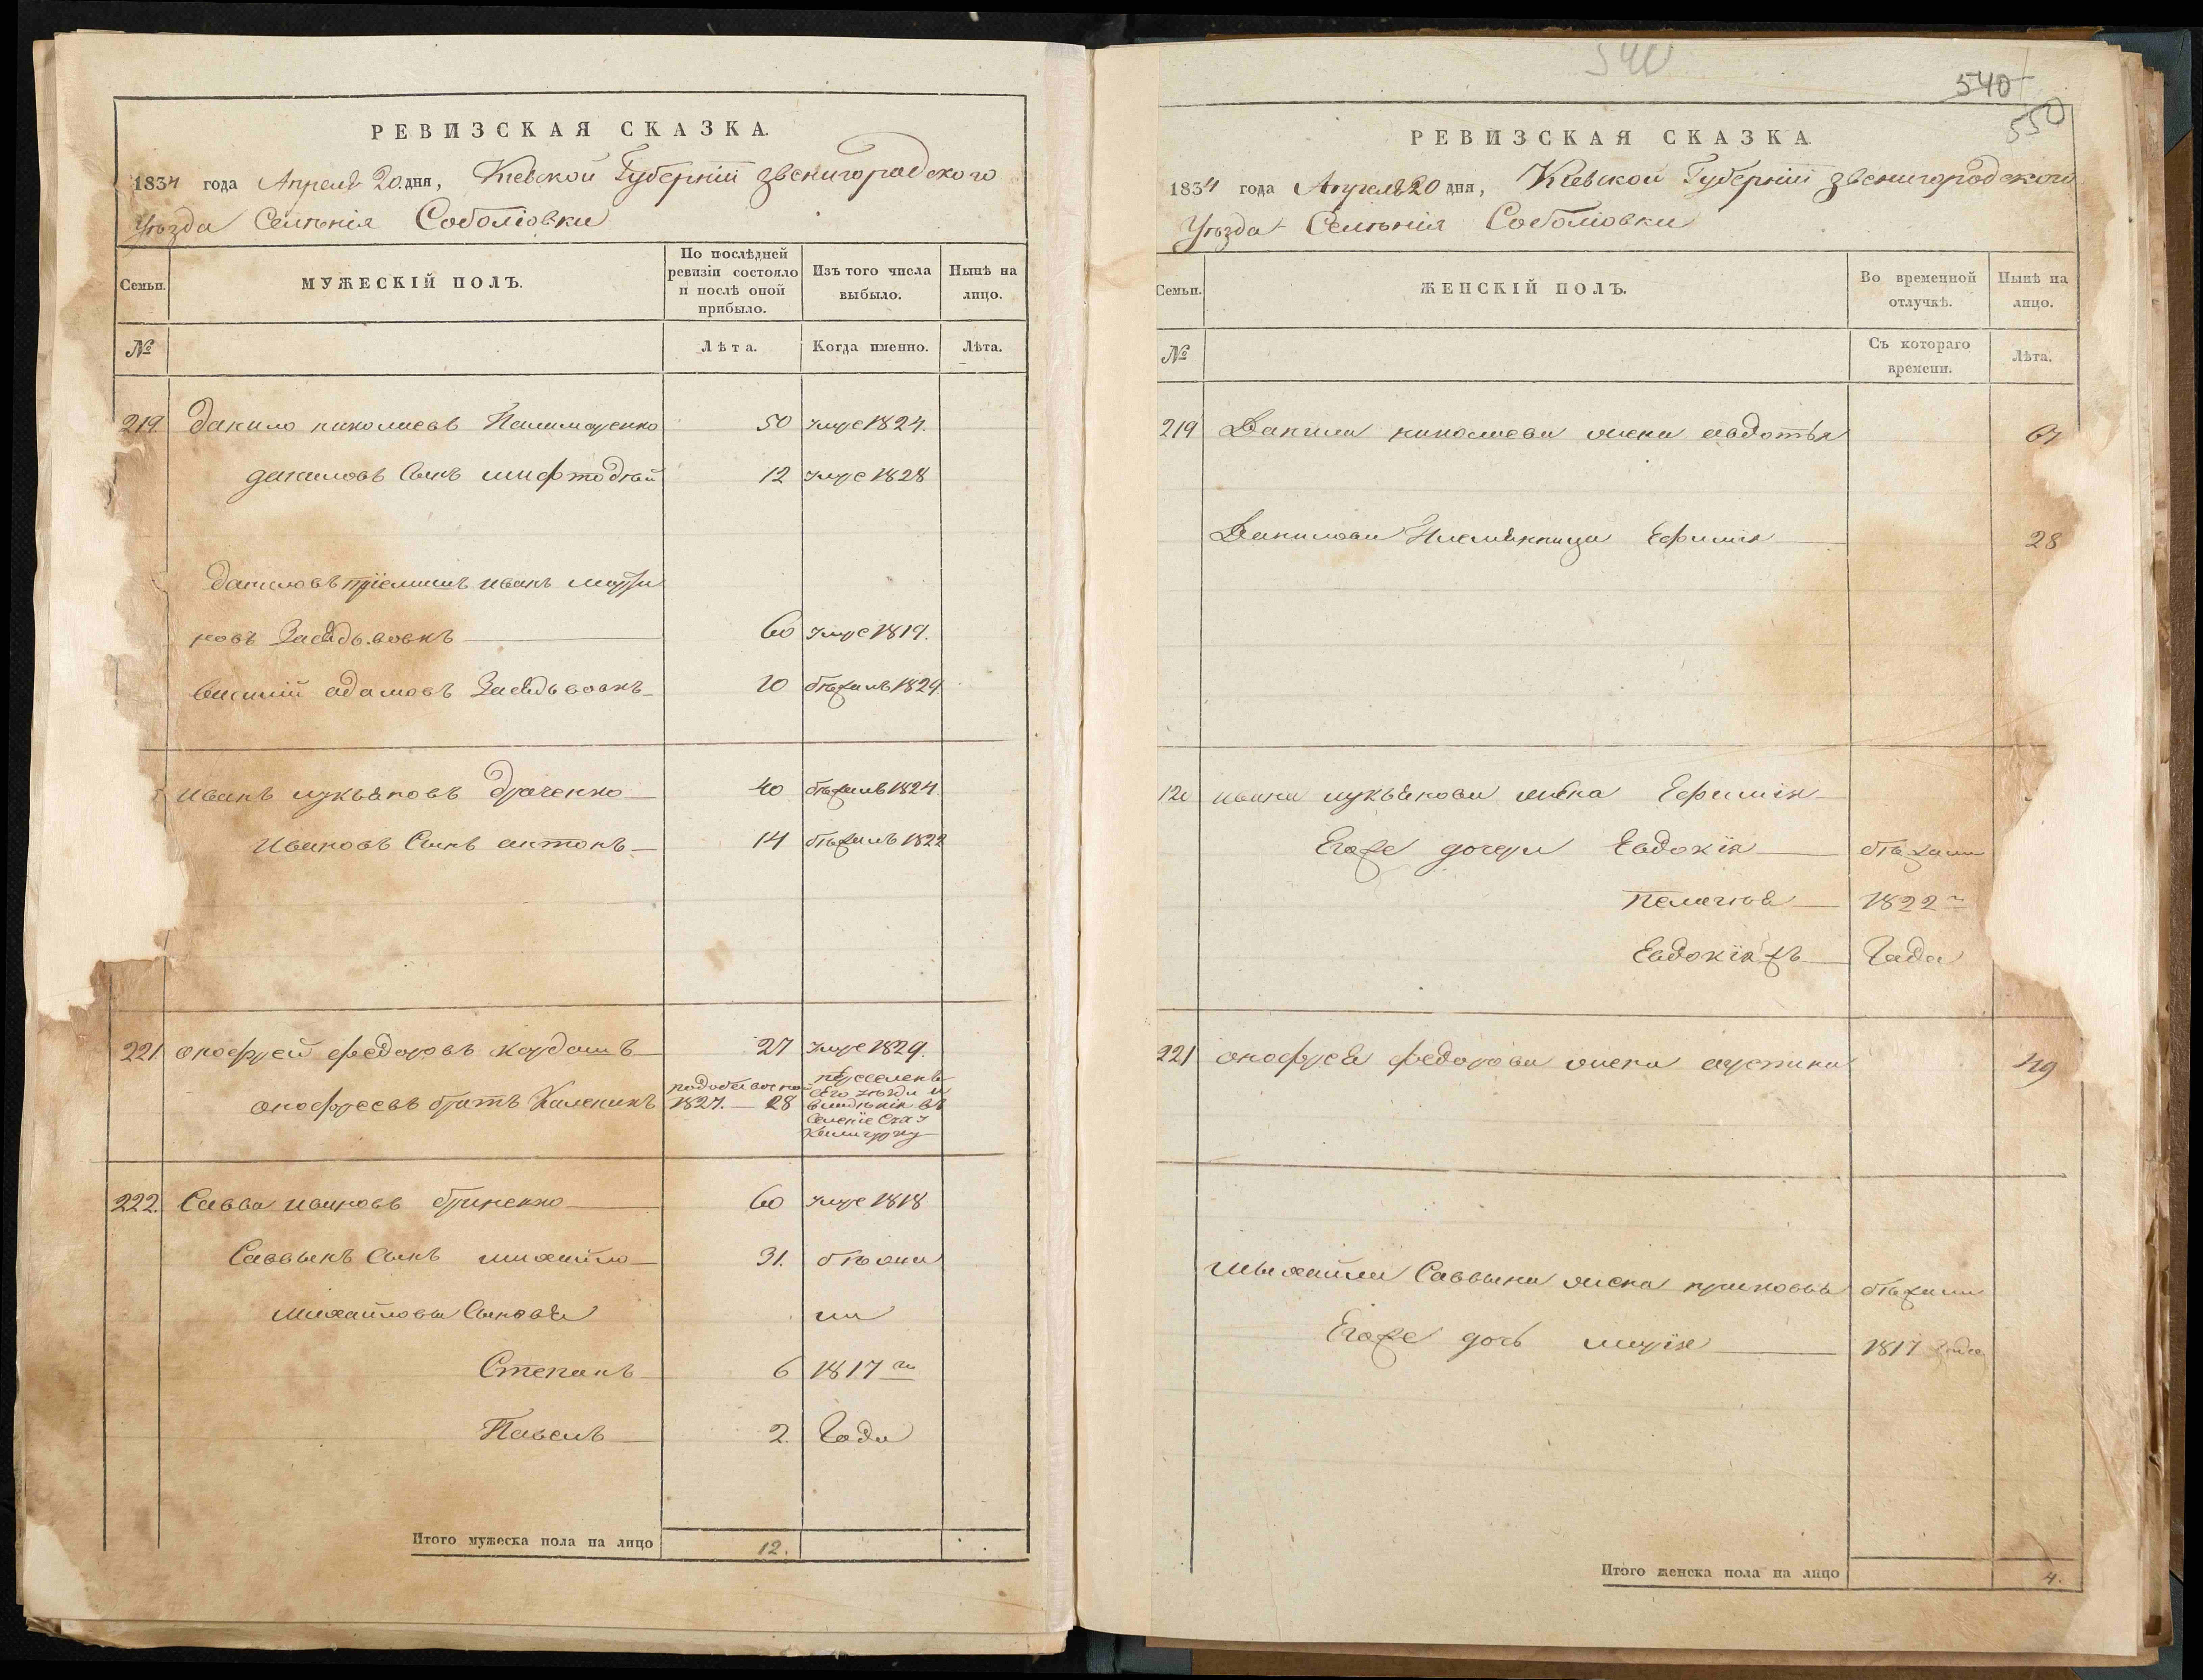 РЕВИЗСКАЯ СКАЗКА.
1834 года Апреля 20 дня, Кіевской Губерніи звенигородского
Уѣзда Селѣнія Соболіовки
Семьи.
МУЖЕСКІЙ ПОЛЪ.
По послѣдней ревизіи состояло и послѣ оной прибыло.
Изъ того числа выбыло.
Нынѣ на лицо.
№
Лѣта.
Когда именно.
Лѣта.
219. данило николаевъ 50 умре 1824.
даниловъ Сынъ 12 умре 1828
даниловъ приемишъ иванъ марти
новъ 60 умре 1819.
адамовъ 20 бѣжалъ 1829
иванъ лукьяновъ драченко 40 бѣжалъ 1824
ивановъ Сынъ антонъ 14 бѣжалъ 1822
221. онофрей федоровъ кардашъ 27 умре 1829.
онофреевъ братъ Каленикъ 1827. 28
переселенъ
222. Савва ивановъ гриненко 60 умре 1818
Саввынъ Сынъ михайло 31. бѣжа
михайловы Сыновья ли
Степанъ 6 1817 го
Павелъ 2. Года
Итого мужеска пола на лицо 12.
540
540
550
РЕВИЗСКАЯ СКАЗКА.
1834 года Апреля 20 дня, Кіевской Губерніи звенигородского
Уѣзда Селѣнія Соболіовки
Семьи.
ЖЕНСКІЙ ПОЛЪ.
Во временной отлучкѣ.
Нынѣ на лицо.
№
Съ котораго времени.
Лѣта.
219 Данила николаева жена авдотья
Данилова Племянница Ефимия 28
ивана лукьянова жена Ефимия
Егоже дочери Евдокія бѣжали
Пелагея 1822 го
Евдокія жъ Года
221 онофрея федорова жена 49
Михайла Саввына жена бѣжали
Егоже дочь марія 1817 года
Итого женска пола на лицо 4.